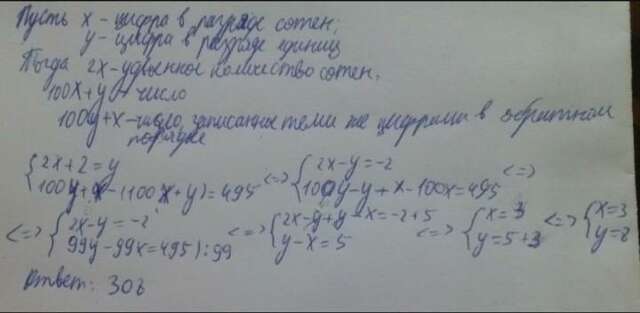 Пусть x - цифра в разряде сотен;
y - цифра в разряде единиц
Тогда 2x - удвоенное количество сотен.
100x+y - число
100y+x - число, записанное теми же цифрами в обратном
порядке
{2x+2=y {2x-y=-2
100y+x-(100x+y)=495 <=> 100y-y+x-100x=495 <=>
<=> {2x-y=-2 <=> {2x-y+y-x=-2+5 <=> {x=3 <=> {x=3
99y-99x=495):99 y-x=5 y=5+3 y=8
Ответ: 308